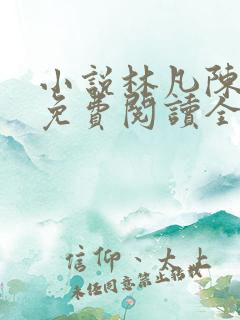 小說林凡陳
免費閱讀全
信仰、大上
未經同意禁止搭載